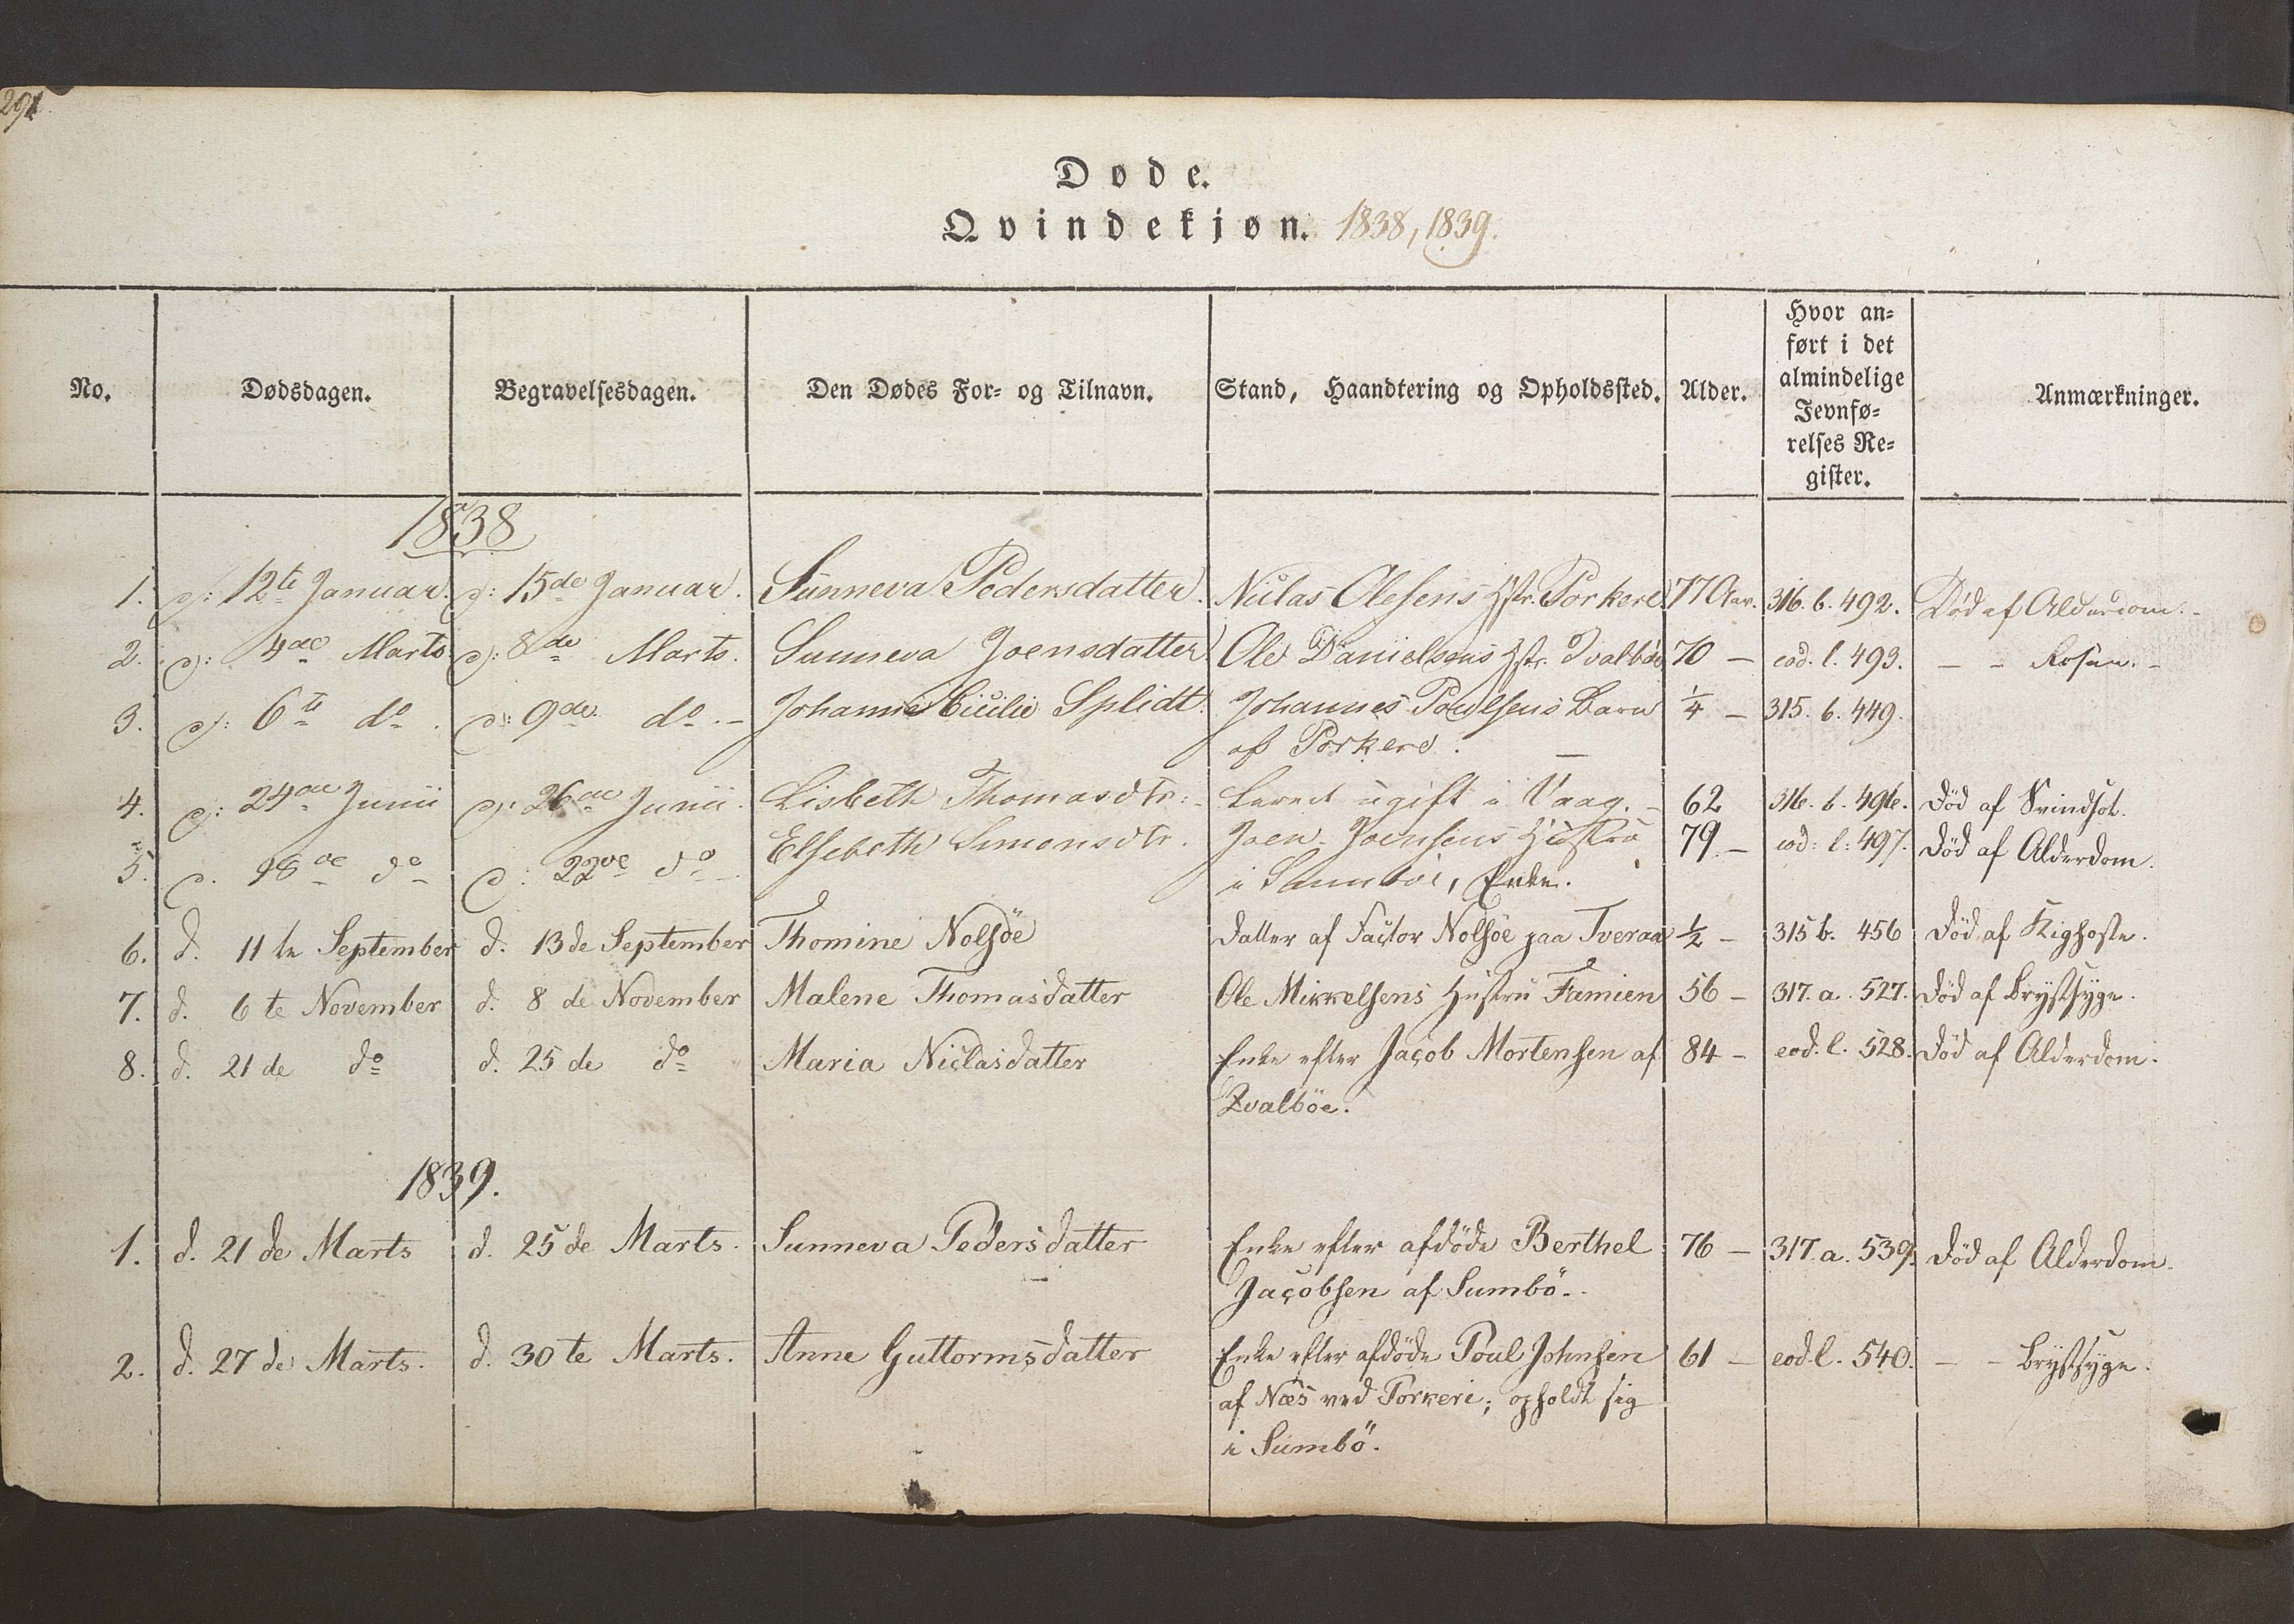 291
Døde.
Qvindekjøn. 1838, 1839.
No. Dødsdagen. Begravelsesdagen. Den Dødes For- og Tilnavn. Stand, Haandtering og Opholdssted. Alder. Hvor an=
ført i det
almindelige
Jevnfø=
relses Re=
gister. Anmærkninger.
1838
1. d: 12te Januar. d: 15de Januar. Sunneva Pedersdatter. Niclas Olesens Hstr. Porkere. 77 Aar. 316. b. 492. Død af Alderdom.
2. d: 4de Marts d: 8de Marts. Sunneva Joensdatter Ole Danielsens Hstr. Qvalböe 70 — eod. l. 493. — — Rosen. —
3. d: 6te do. d: 9de do. — Johanne Cicilie Splidt. Johannes Poulsens Barn 1/4 — 315. b. 449.
af Porkere. —
4. d: 24de Junii d: 26de Junii. Lisbeth Thomasdtr: ugift i Vaag. — 62 316. b. 496. Död af Svindsot.
5. d. 18de do d: 22de do Elsebeth Simonsdtr. Joen Joensens Hustru 79 — eod: l: 497. Död af Alderdom.
i Sumböe, Enke.
6. d. 11te September d. 13de September Thomine Nolsöe Datter af Factor Nolsöe paa Tveraae 1/2 — 315 b. 456 Död af Kighoste.
7. d. 6te November d. 8de November Malene Thomasdatter Ole Mikkelsens Hustru Famien 56 — 317. a. 527. Död af Brystsyge.
8. d. 21de do d. 25de do Maria Niclasdatter Enke efter Jacob Mortensen af 84 — eod. l. 528. Död af Alderdom.
Qvalböe.
1839.
1. d. 21de Marts d. 25de Marts. Sunneva Pedersdatter Enke efter afdöde Berthel 76 — 317. a. 539. Död af Alderdom.
Jacobsen af Sumbö.
2. d. 27de Marts. d. 30te Marts. Anne Guttormsdatter Enke efter afdöde Poul Johnsen 61 — eod. l. 540. — — Brystsyge.
af Næs ved Porkeri; opholdt sig
i Sumbö.